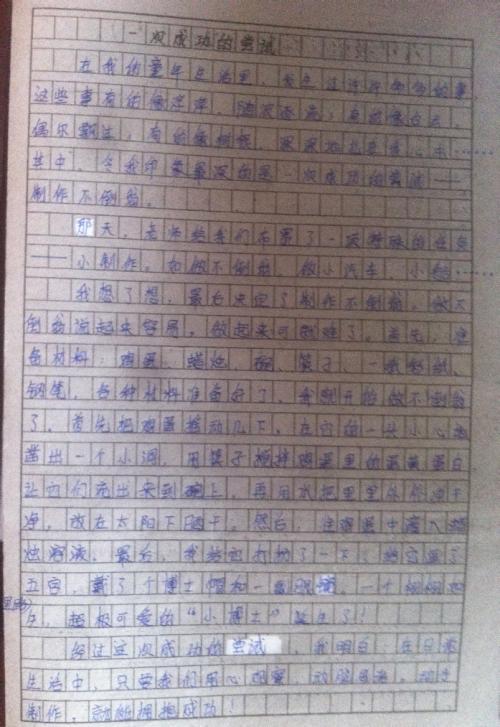 一次成功的尝试
在我的童年生活里,发生过许许多多的事,
这些事有的像浮萍,随波逐流;有的像白云,
偶尔飘过;有的像树根,深深地扎在我心中……
其中,令我印象最深的是一次成功的尝试——
制作不倒翁。
那天,老师给我们布置了一项特殊的任务
——小制作。如做不倒翁,做小汽车、小船……
我想了想,最后决定了制作不倒翁。做不
倒翁说起来容易,做起来可就难了。首先,准
备材料:鸡蛋、蜡烛、碗、筷子、一张彩纸、
钢笔。各种材料准备好了,我就开始做不倒翁
了。首先把鸡蛋摇动几下,在它的一头小心地
凿出一个小洞,用筷子搅拌鸡蛋里的蛋黄蛋白
让它们流出来到碗上,再用水把里里外外冲干
净,放在太阳下晒干。然后,往鸡蛋中灌入蜡
烛溶液。最后,我给它打扮了一下:给它画了
五官,戴了个博士帽和一副眼镜,一个
极可爱的“小博士”诞生了!
经过这次成功的尝试,我明白:在日常
生活中,只要我们用心观察,动脑思考,动手
制作,就能拥抱成功!